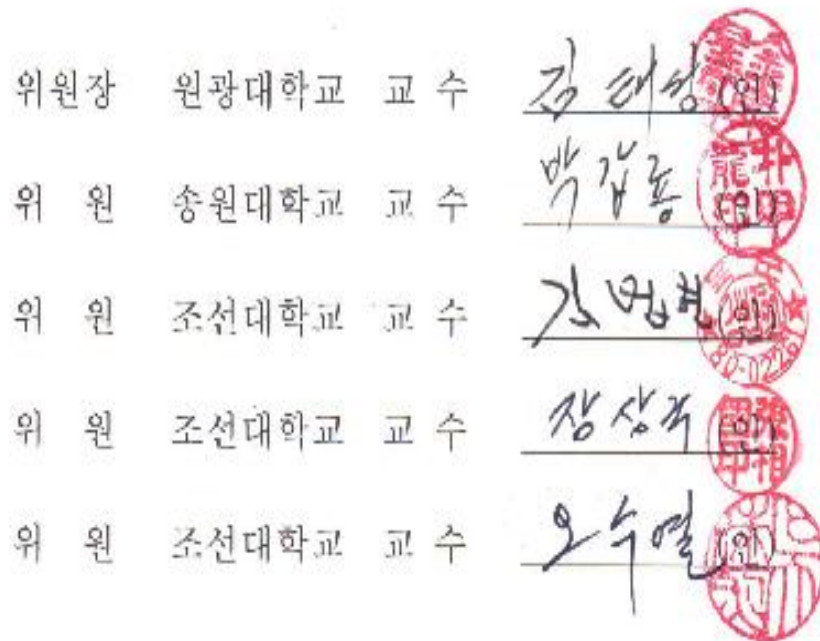 위원장 원광대학교 교수 김 태 (인)
위 원 송원대학교 교수 박갑룡 (인)
위 원 조선대학교 교수 김 (인)
위 원 조선대학교 교수 장상 (인)
위 원 조선대학교 교수 오수열 (인)